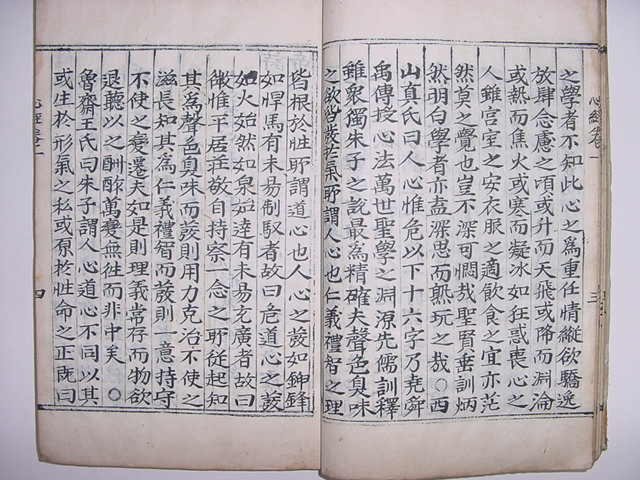 心經卷一 三
之學者不知此心之爲重任情縱欲驕逸
放肆念慮之頃或升而天飛或降而淵淪
或熱而焦火或寒而凝冰如狂惑喪心之
人雖宮室之安衣服之適飮食之宜亦茫
然莫之覺也豈不深可憫哉聖賢垂訓炳
然明白學者亦盍深思而熟玩之哉○西
山眞氏曰人心惟危以下十六字乃堯舜
禹傳授心法萬世聖學之淵源先儒訓釋
雖衆獨朱子之說最爲精確夫聲色臭味
之欲皆發於氣所謂人心也仁義禮智之理
皆根於性所謂道心也人心之發如銛鋒
如悍馬有未易制馭者故曰危道心之發
如火始然如泉始達有未易充廣者故曰
微惟平居莊敬自持察一念之所從起知
其爲聲色臭味而發則用力克治不使之
滋長知其爲仁義禮智而發則一意持守
不使之變遷夫如是則理義常存而物欲
退聽以之酬酢萬變無徃而非中矣○
魯齋王氏曰朱子謂人心道心不同以其
或生於形氣之私或原於性命之正旣曰
心經卷一 四